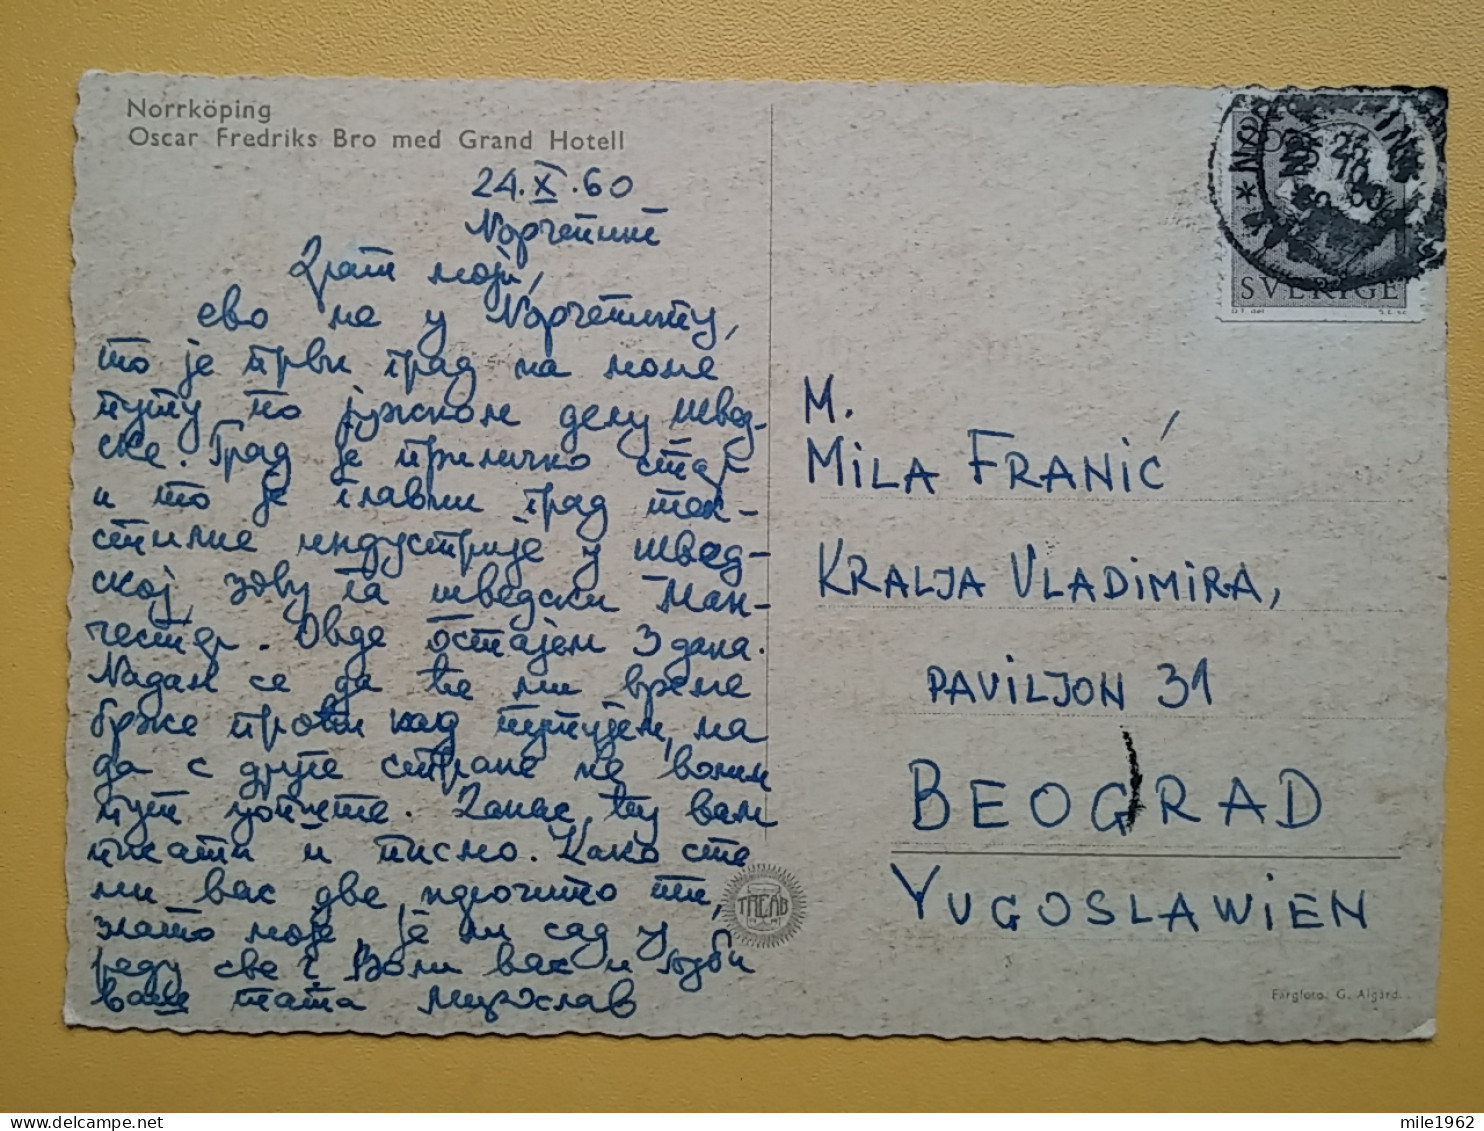 Norrköping
Oscar Fredriks Bro med Grand Hotell
24.X.60
Норчепинг
Драги моји,
ево ме у Норчепингу,
то је први град на моме
путу по јужном делу Швед-
ске. Град је прилично стар
и то је главни град тек-
стилне индустрије у Швед-
ској, зову га шведски Ман-
честер. Овде остајем 3 дана.
Надам се да ће ми време
брже проћи кад путујем, ма
да с друге стране не волим
пут уопште. Данас ћу вам
писати и писмо. Како сте
ми вас две, нарочито ти,
злато моје, је ли сад у
реду све? Воли вас и љуби
ваш тата Мирослав
SVERIGE
M.
MILA FRANIĆ
KRALJA VLADIMIRA,
PAVILJON 31
BEOGRAD
YUGOSLAWIEN
Färgfoto: G. Algård.
mile1962